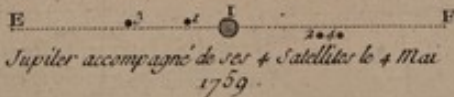 E 3 1 I F
2 4
Jupiter accompagné de ses 4 Satellites le 4 Mai
1759.